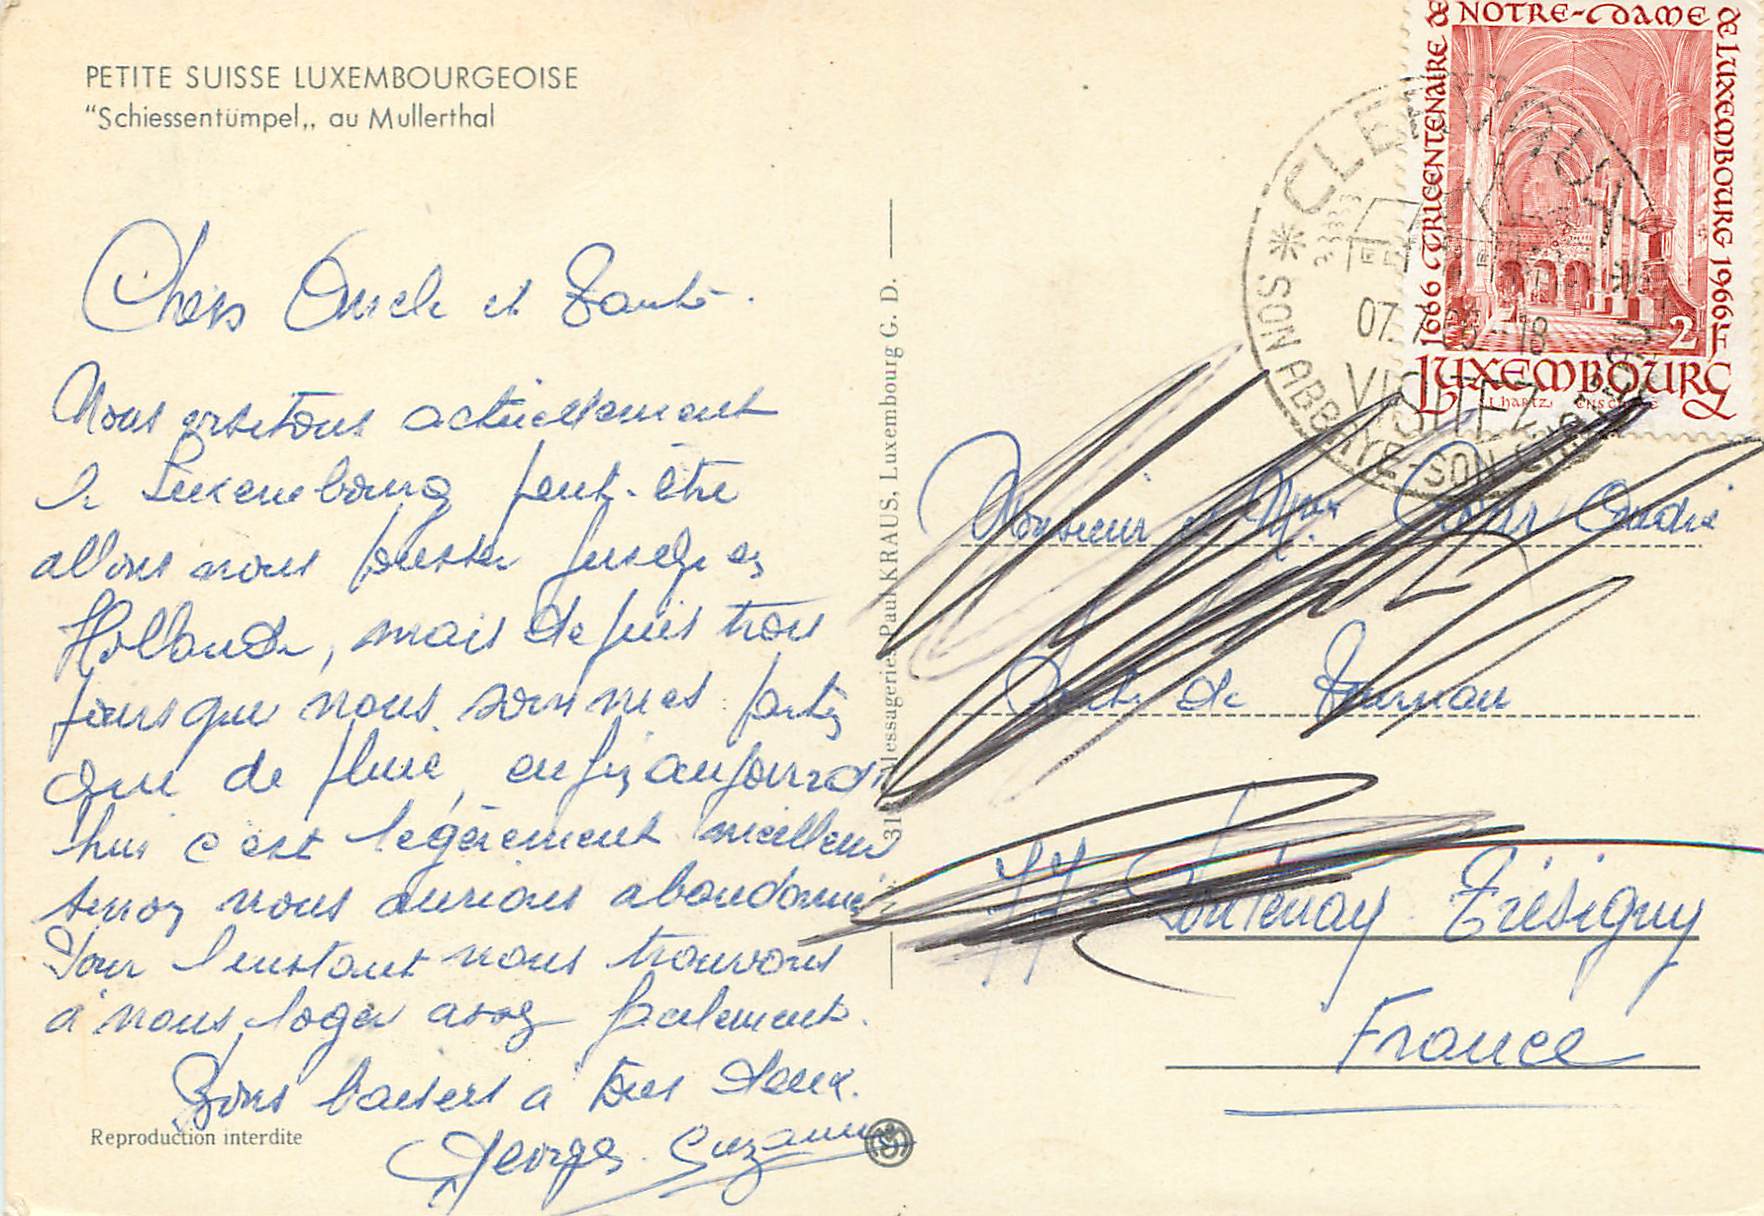 PETITE SUISSE LUXEMBOURGEOISE
"Schiessentümpel„ au Mullerthal
Chers Oncle et Tante.
Nous visitons actuellement
le Luxembourg peut-être
allons nous pousser jusqu'en
Hollande, mais depuis trois
jours que nous sommes partis
que de pluie, enfin aujourd'
hui c'est légèrement meilleur
sinon nous aurions abandonné
Pour l'instant nous trouvons
à nous loger assez facilement.
Bons baisers à tous deux.
Georges Suzanne
Reproduction interdite
Messageries Paul KRAUS, Luxembourg G. D.
1666 TRICENTENAIRE DE NOTRE-DAME DE LUXEMBOURG 1966
2F
LUXEMBOURG
CLERVAUX
07.7. 18
VISITEZ
SON ABBAYE-SON
Monsieur et Mme André
de
77. Fontenay Trésigny
France